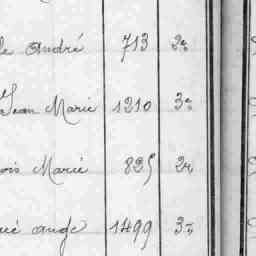 André 713 2e
Jean Marie 1210 3e
ois Marie 825 2e
ué ange 1499 3e